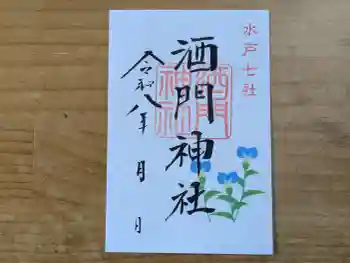 水戸七社
酒門神社
酒門
神社
令和八年 月 日